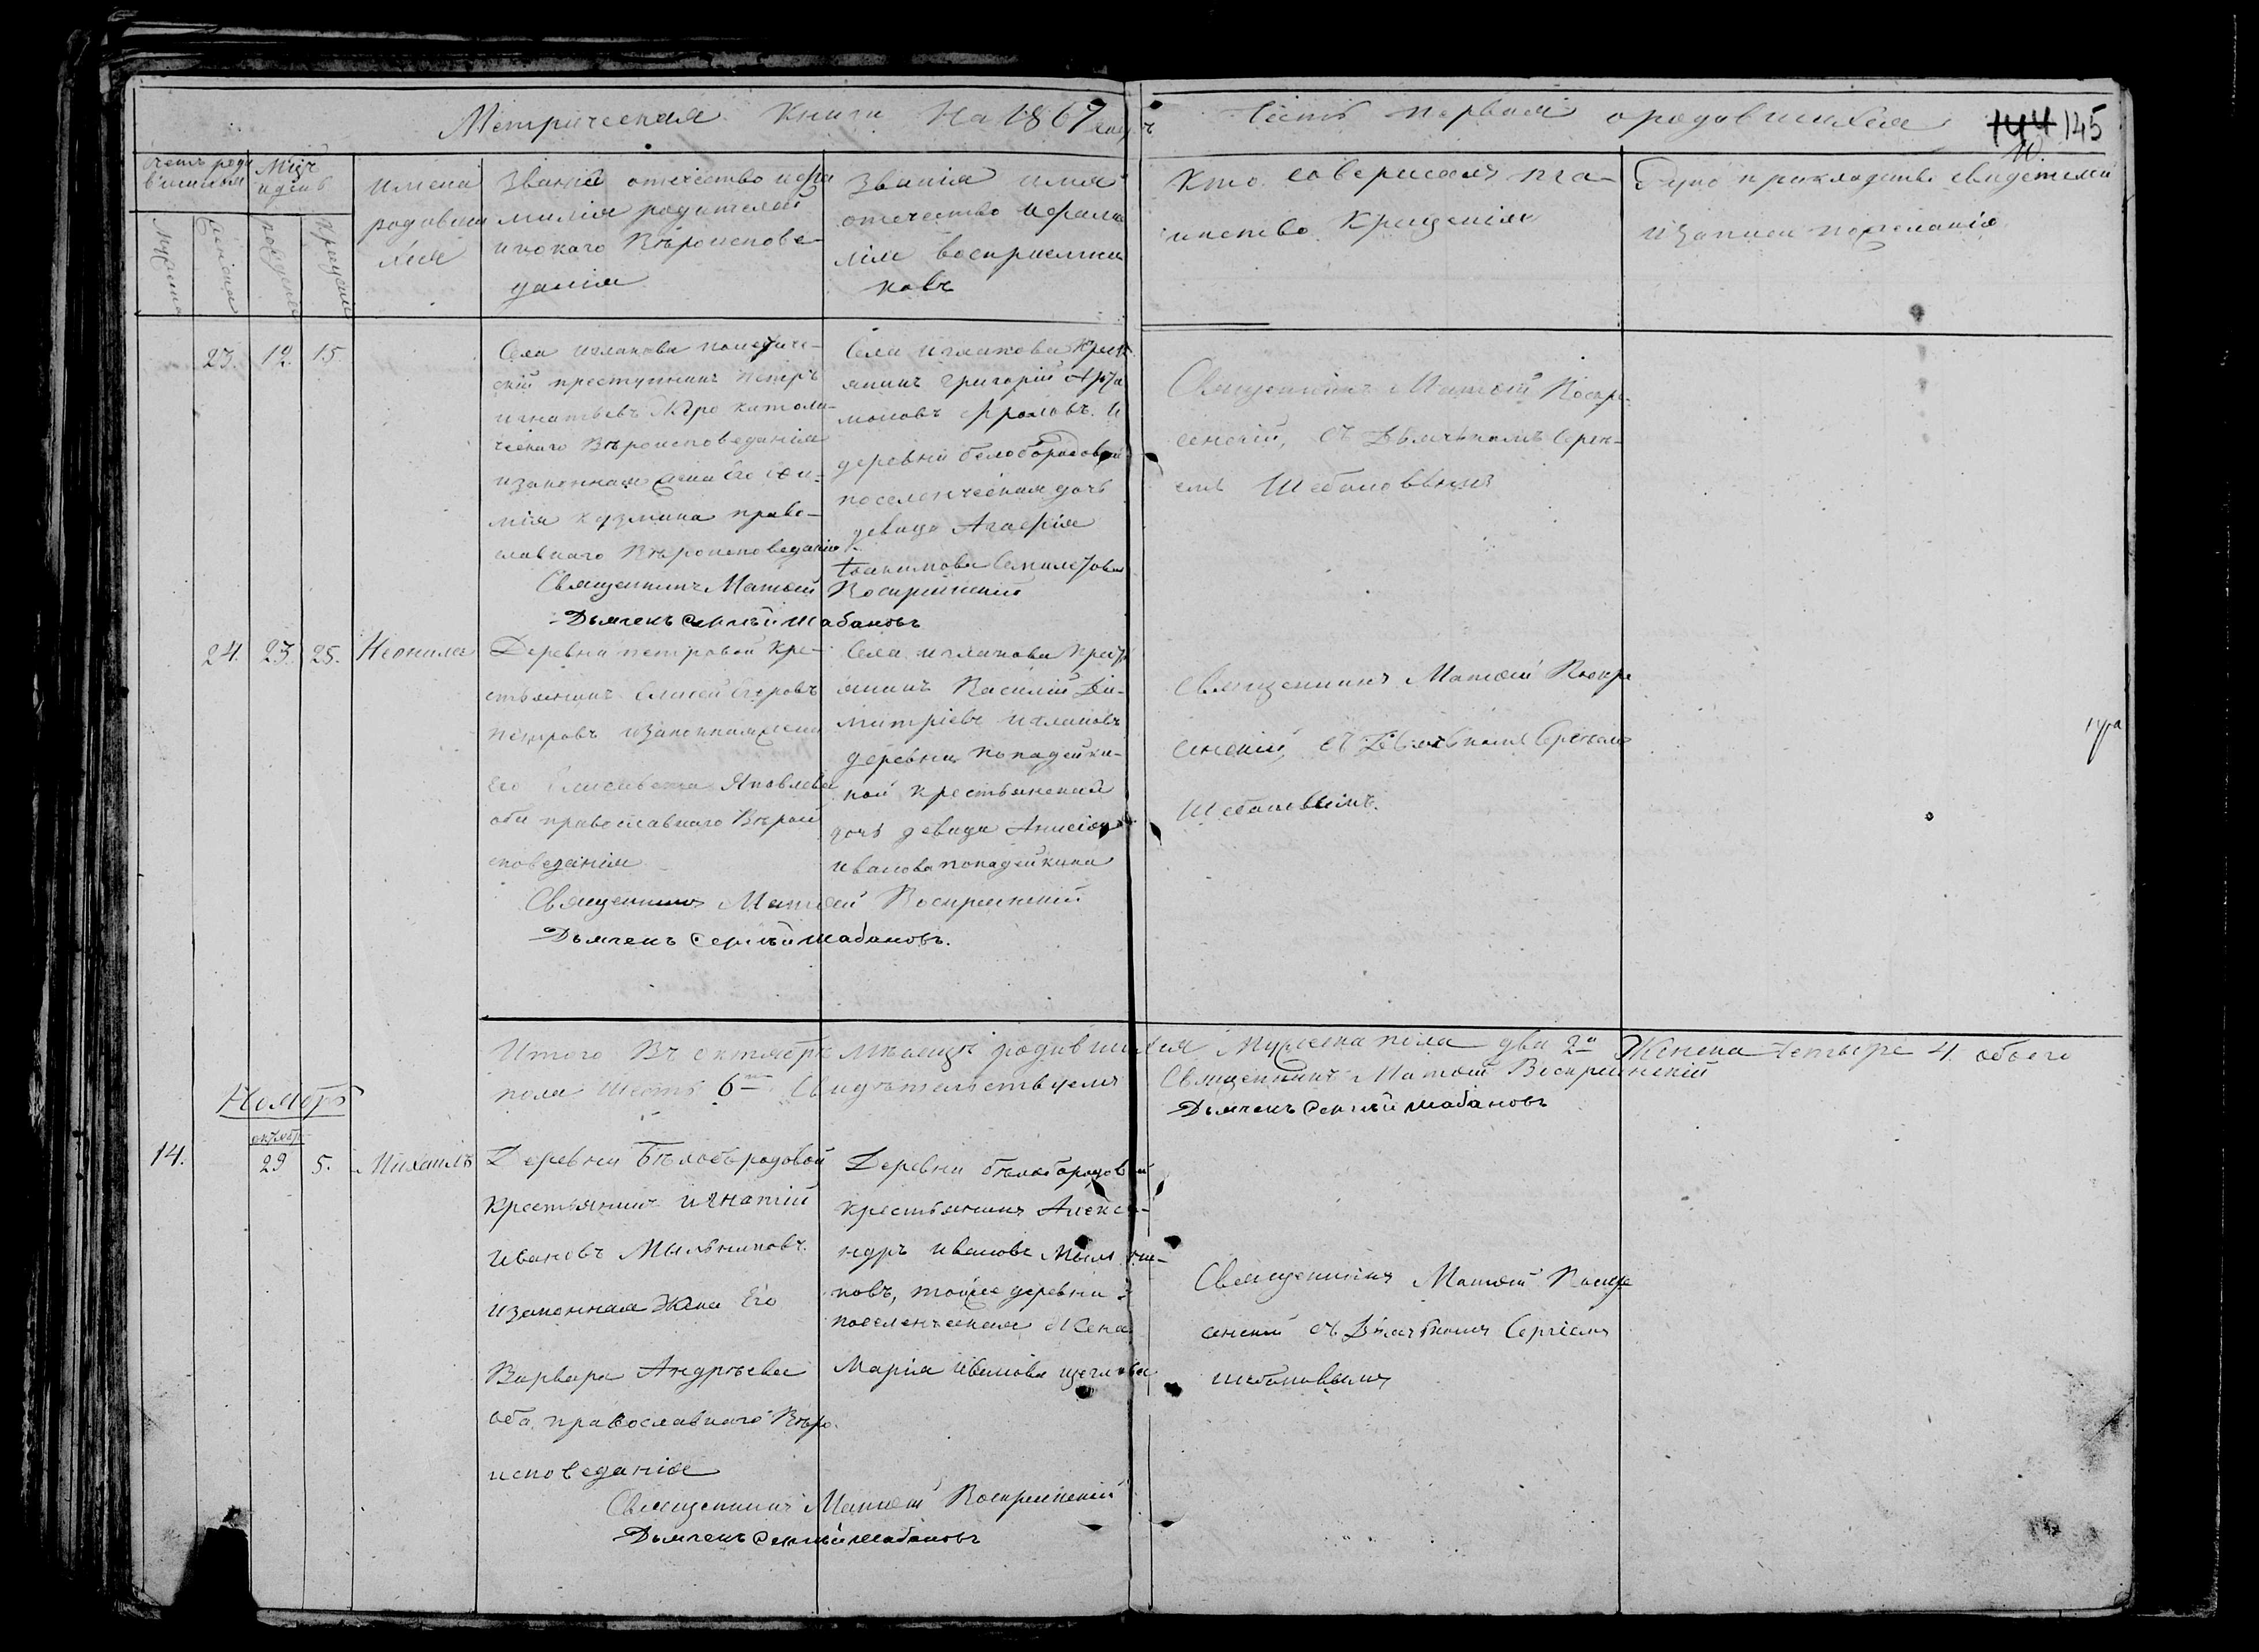 Метрическая Книга На 1867 годъ
Часть первая о родившихся
144 145
10.
Мужеска
Женска
рожденія
крещенія
Имена
родовши
хся
Званіе отечество и фа
милія родителей
и какого Вѣроисповѣ-
данія
Званія имя
отечество и фами
лія воспріемни
ковъ
Кто совершалъ та-
инство Крещенія
23. 12. 15.
скій преступникъ Петръ
игнатьевъ
ческаго Вѣроисповеданія
и законная жена Его
мія Кузмина право-
славнаго Вѣроисповеданія
Священникъ Матфей Воскресенскій
Дьячекъ Сергѣй Шабановъ
янинъ Григорій Арта
моновъ Фроловъ. И
деревни белобородовой
поселенческая дочь
девица Агафія
Священникъ Матфей Воскре-
сенскій, съ Дьячькомъ Серги-
емъ Шебановымъ
24. 23. 25. Неонила
Деревни петровой Кре-
стьянинъ Елисей Егоровъ
петровъ и законная жена
Его Елисавета Яковлева
оба православнаго Вѣрои
споведанія
Священникъ Матфей Воскресенскій
Дьячекъ Сергѣй Шабановъ.
янинъ Василій Ди-
митріевъ
деревни попадейки-
ной крестьянская
дочь девица Анисія
иванова попадейкина
Священникъ Матфей Воскре
сенскій, съ Дьячькомъ Сергіемъ
Шебановымъ.
Итого Въ октябрѣ мѣсяцѣ родившихся Мужеска пола два 2а Женска четыре 4 обоего
пола шесть 6ть Свидѣтельствуемъ Священникъ Матфей Воскресенскій
Дьячекъ Сергѣй Шабановъ
Ноябрь
октябрь
14. 29 5. Михаилъ
Деревни Бѣлобородовой
Крестьянинъ игнатій
Ивановъ Мыльниковъ
и законная Жена Его
Варвара Андрѣева
оба православнаго Вѣро-
исповеданія
Священникъ Матфей Воскресенскій
Дьячекъ Сергѣй Шабановъ
Деревни бѣлобородовой
крестьянинъ Алекса-
ндръ ивановъ Мыльни-
ковъ, тойже деревни
поселенческая Жена
Марія иванова щеглова
Священникъ Матфей Воскре
сенскій съ Дьячькомъ Сергіемъ
шебановымъ